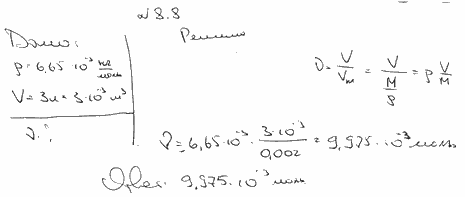 № 8.8
Дано:
Решение
ρ = 6,65 · 10⁻³ кг/моль
V = 3л = 3·10⁻³ м³
ν - ?
ν = V/Vₘ = V/(M/ρ) = ρ V/M
ν = 6,65·10⁻³ · 3·10⁻³/0,002 = 9,975·10⁻³ моль
Ответ: 9,975·10⁻³ моль